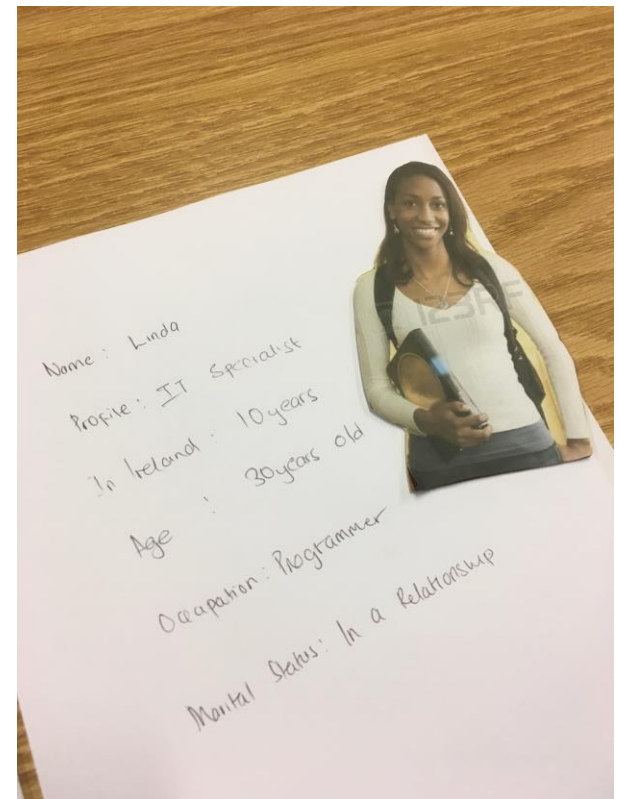 Name: Linda
Profile: IT Specialist
In Ireland: 10 years
Age : 30 years old
Occupation: Programmer
Marital Status: In a Relationship
123RF